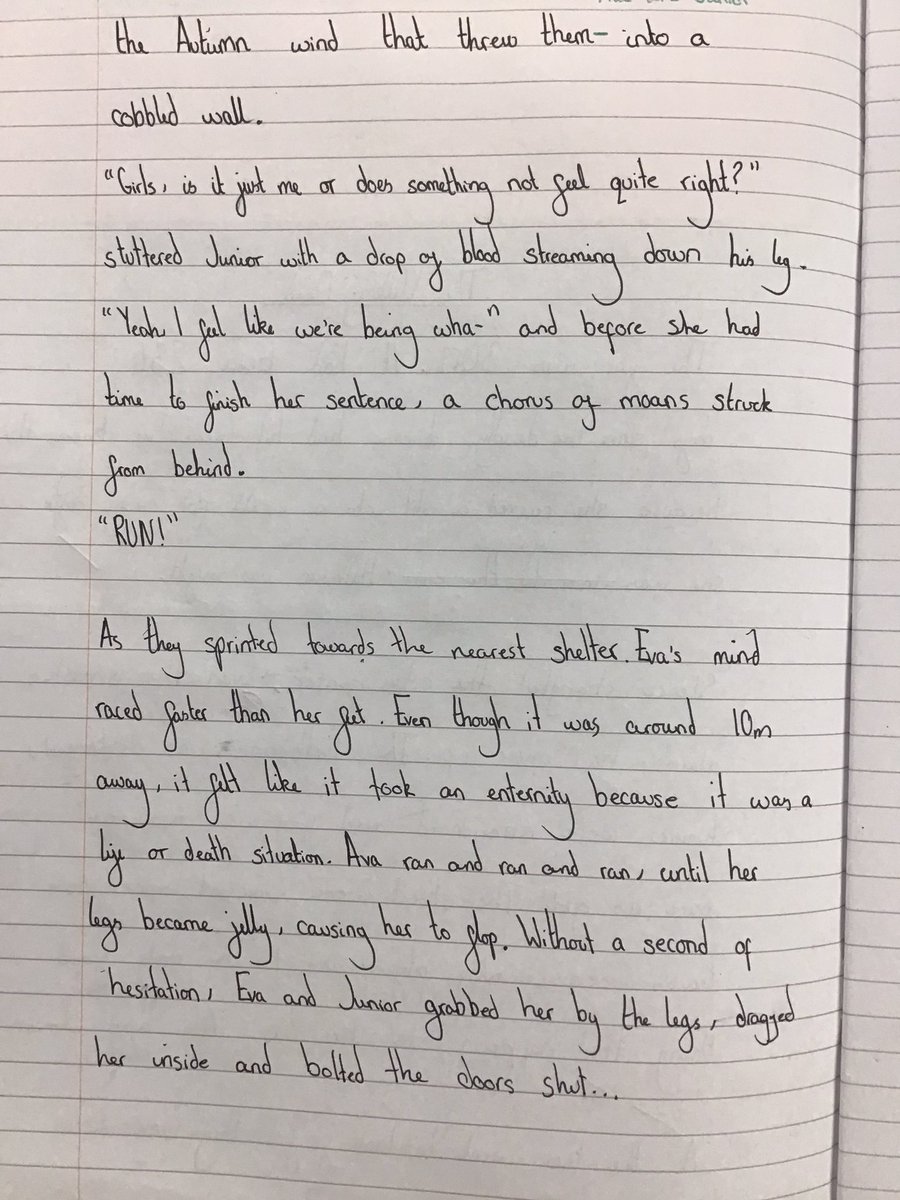 the Autumn wind that threw them- into a
cobbled wall.
"Girls, is it just me or does something not feel quite right?"
stuttered Junior with a drop of blood streaming down his leg.
"Yeah, I feel like we're being wha-" and before she had
time to finish her sentence, a chorus of moans struck
from behind.
"RUN!"
As they sprinted towards the nearest shelter. Eva's mind
raced faster than her feet. Even though it was around 10m
away, it felt like it took an enternity because it was a
life or death situation. Ava ran and ran and ran, until her
legs became jelly, causing her to flop. Without a second of
hesitation, Eva and Junior grabbed her by the legs, dragged
her inside and bolted the doors shut...